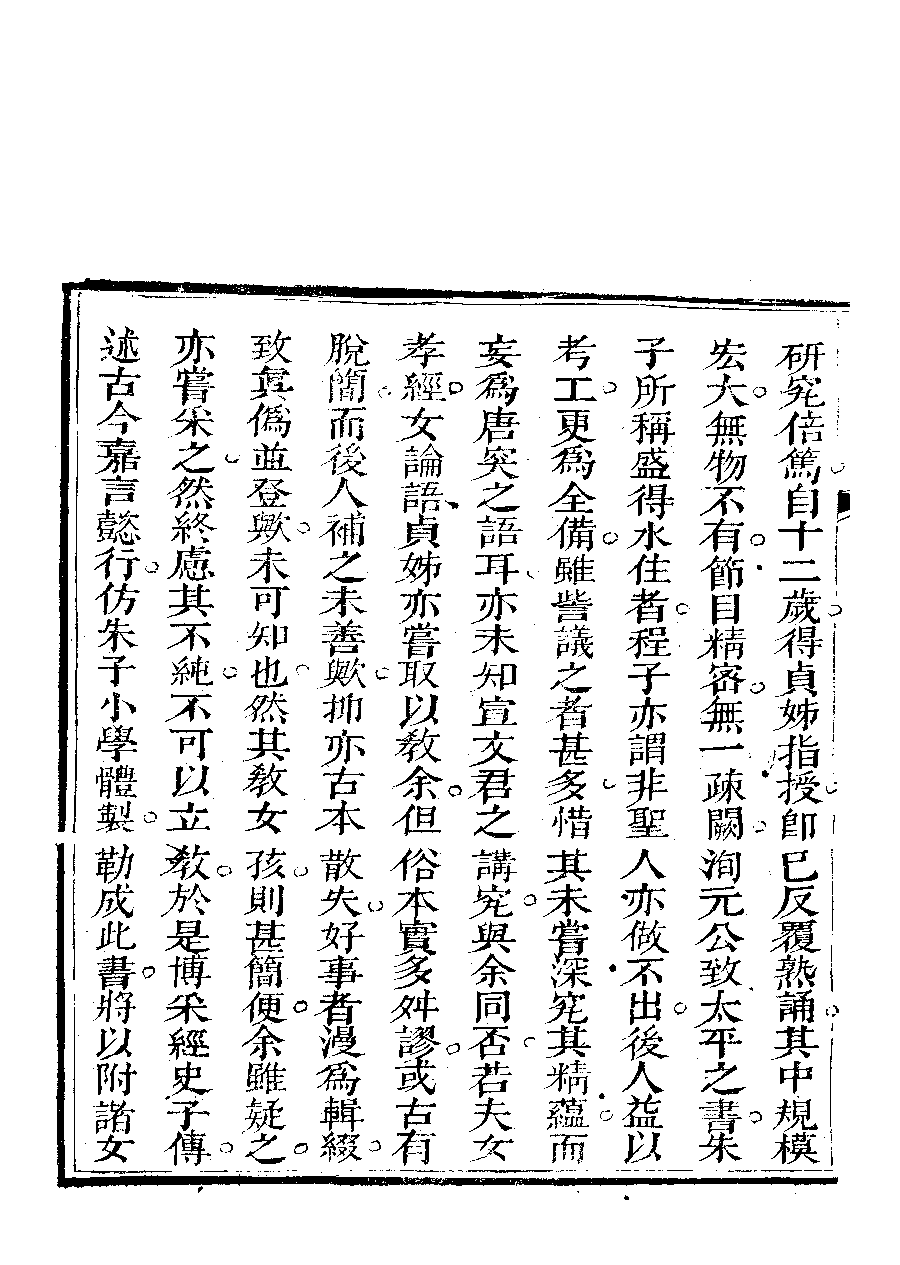 研究倍篤自十二歲得貞姊指授卽已反覆熟誦其中規模
宏大無物不有節目精密無一疎闕洵元公致太平之書朱
子所稱盛得水住者程子亦謂非聖人亦做不出後人益以
考工更爲全備雖訾議之者甚多惜其未嘗深究其精蘊而
妄爲唐突之語耳亦未知宣文君之講究與余同否若夫女
孝經女論語貞姊亦嘗取以敎余但俗本實多舛謬或古有
脫簡而後人補之未善歟抑亦古本散失好事者漫爲輯綴
致眞僞並登歟未可知也然其敎女孩則甚簡便余雖疑之
亦嘗采之然終慮其不純不可以立敎於是博采經史子傳
述古今嘉言懿行仿朱子小學體製勒成此書將以附諸女